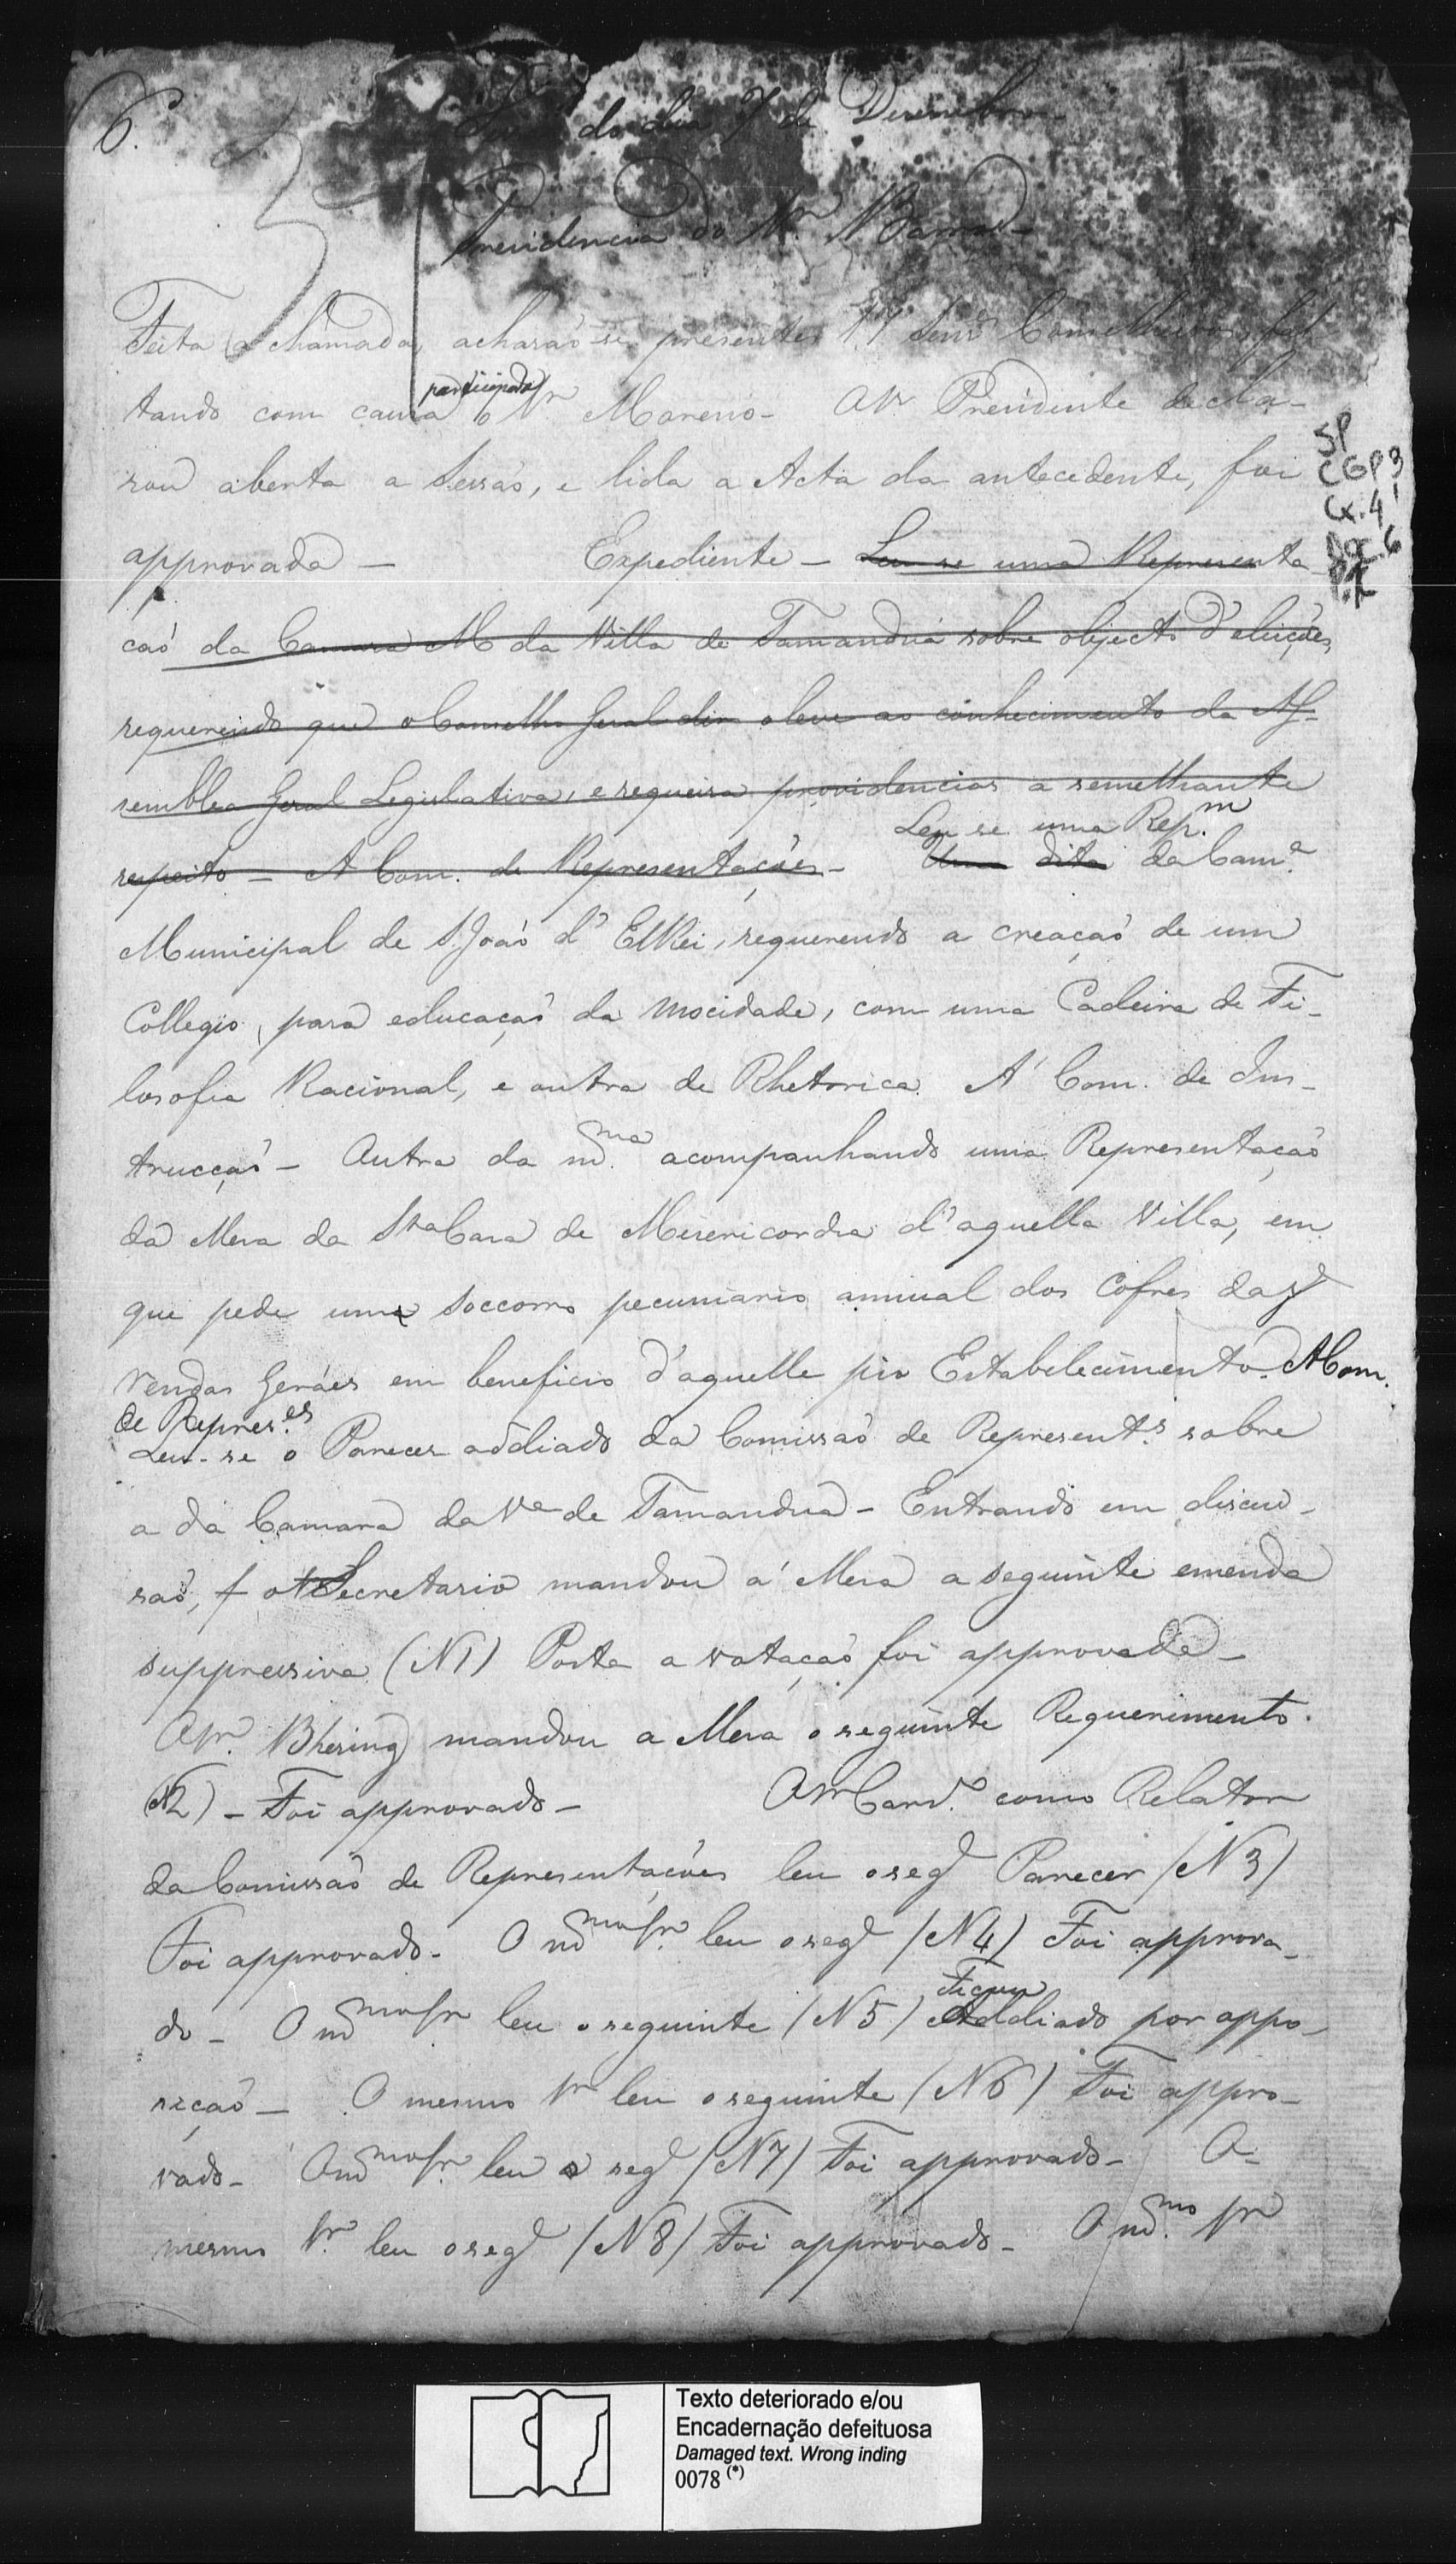 6.
do dia 7 de Dezembro
Presidencia do Sr.
Feita a chamada, acharaõ-se presentes 17 Senrs. Conselheiros, fal
tando com causa participada o Sr. Moreno - O Sr. Presidente decla-
rou aberta a Sessaõ, e lida a Acta da antecedente, foi
approvada - Expediente - Leu se uma Representa
caõ da Camara M da Villa de Tamanduá sobre objecto d'eleições,
requerendo que o Conselho Geral dir o leve ao conhecimento da As-
semblea Geral Legislativa, e requeira providencias a semelhante
respeito - A Com. de Representações - Uma dita Leu se uma Rep.m da Cam.a
Municipal de S. Joaõ d'ElRei, requerendo a creaçaõ de um
Collegio, para educaçaõ da mocidade, com uma Cadeira de Fi-
losofia Racional, e outra de Rhetorica. A' Com. de Ins-
trucçaõ - Outra da m.ma acompanhando uma Representaçaõ
da Mesa da Sta Casa de Misericordia d'aquella Villa, em
que pede um soccorro pecuniario annual dos Cofres das
rendas Geráes em beneficio d'aquelle pio Estabelecimento. A Com.
de Repres.es
Leu-se o Parecer addiado da Comissaõ de Represent.s sobre
a da Camara da Va de Tamanduá - Entrando em discus-
saõ, o Secretario mandou á Mesa a seguinte emenda
suppressiva (N1) Posta a votaçaõ foi approvada -
O Sr. Bhering mandou a Mesa o seguinte Requerimento.
(N2) - Foi approvado - O Sr Card. como Relator
da Comissaõ de Representações leu o seg Parecer (N3)
Foi approvado - O mmo Sr. leu o seg (N4) Foi approva-
do - O mmo Sr leu o seguinte (N5) Ficou Addiado por oppo-
siçaõ - O mesmo Sr leu o seguinte (N6) Foi appro-
vado - O mmo Sr. leu o seg (N7) Foi approvado - O-
mesmo Sr. leu o seg (N8) Foi approvado - O m.mo Sr
SP
CGP3
Cx. 4
Doc. 6
Texto deteriorado e/ou
Encadernação defeituosa
Damaged text. Wrong inding
0078 (*)